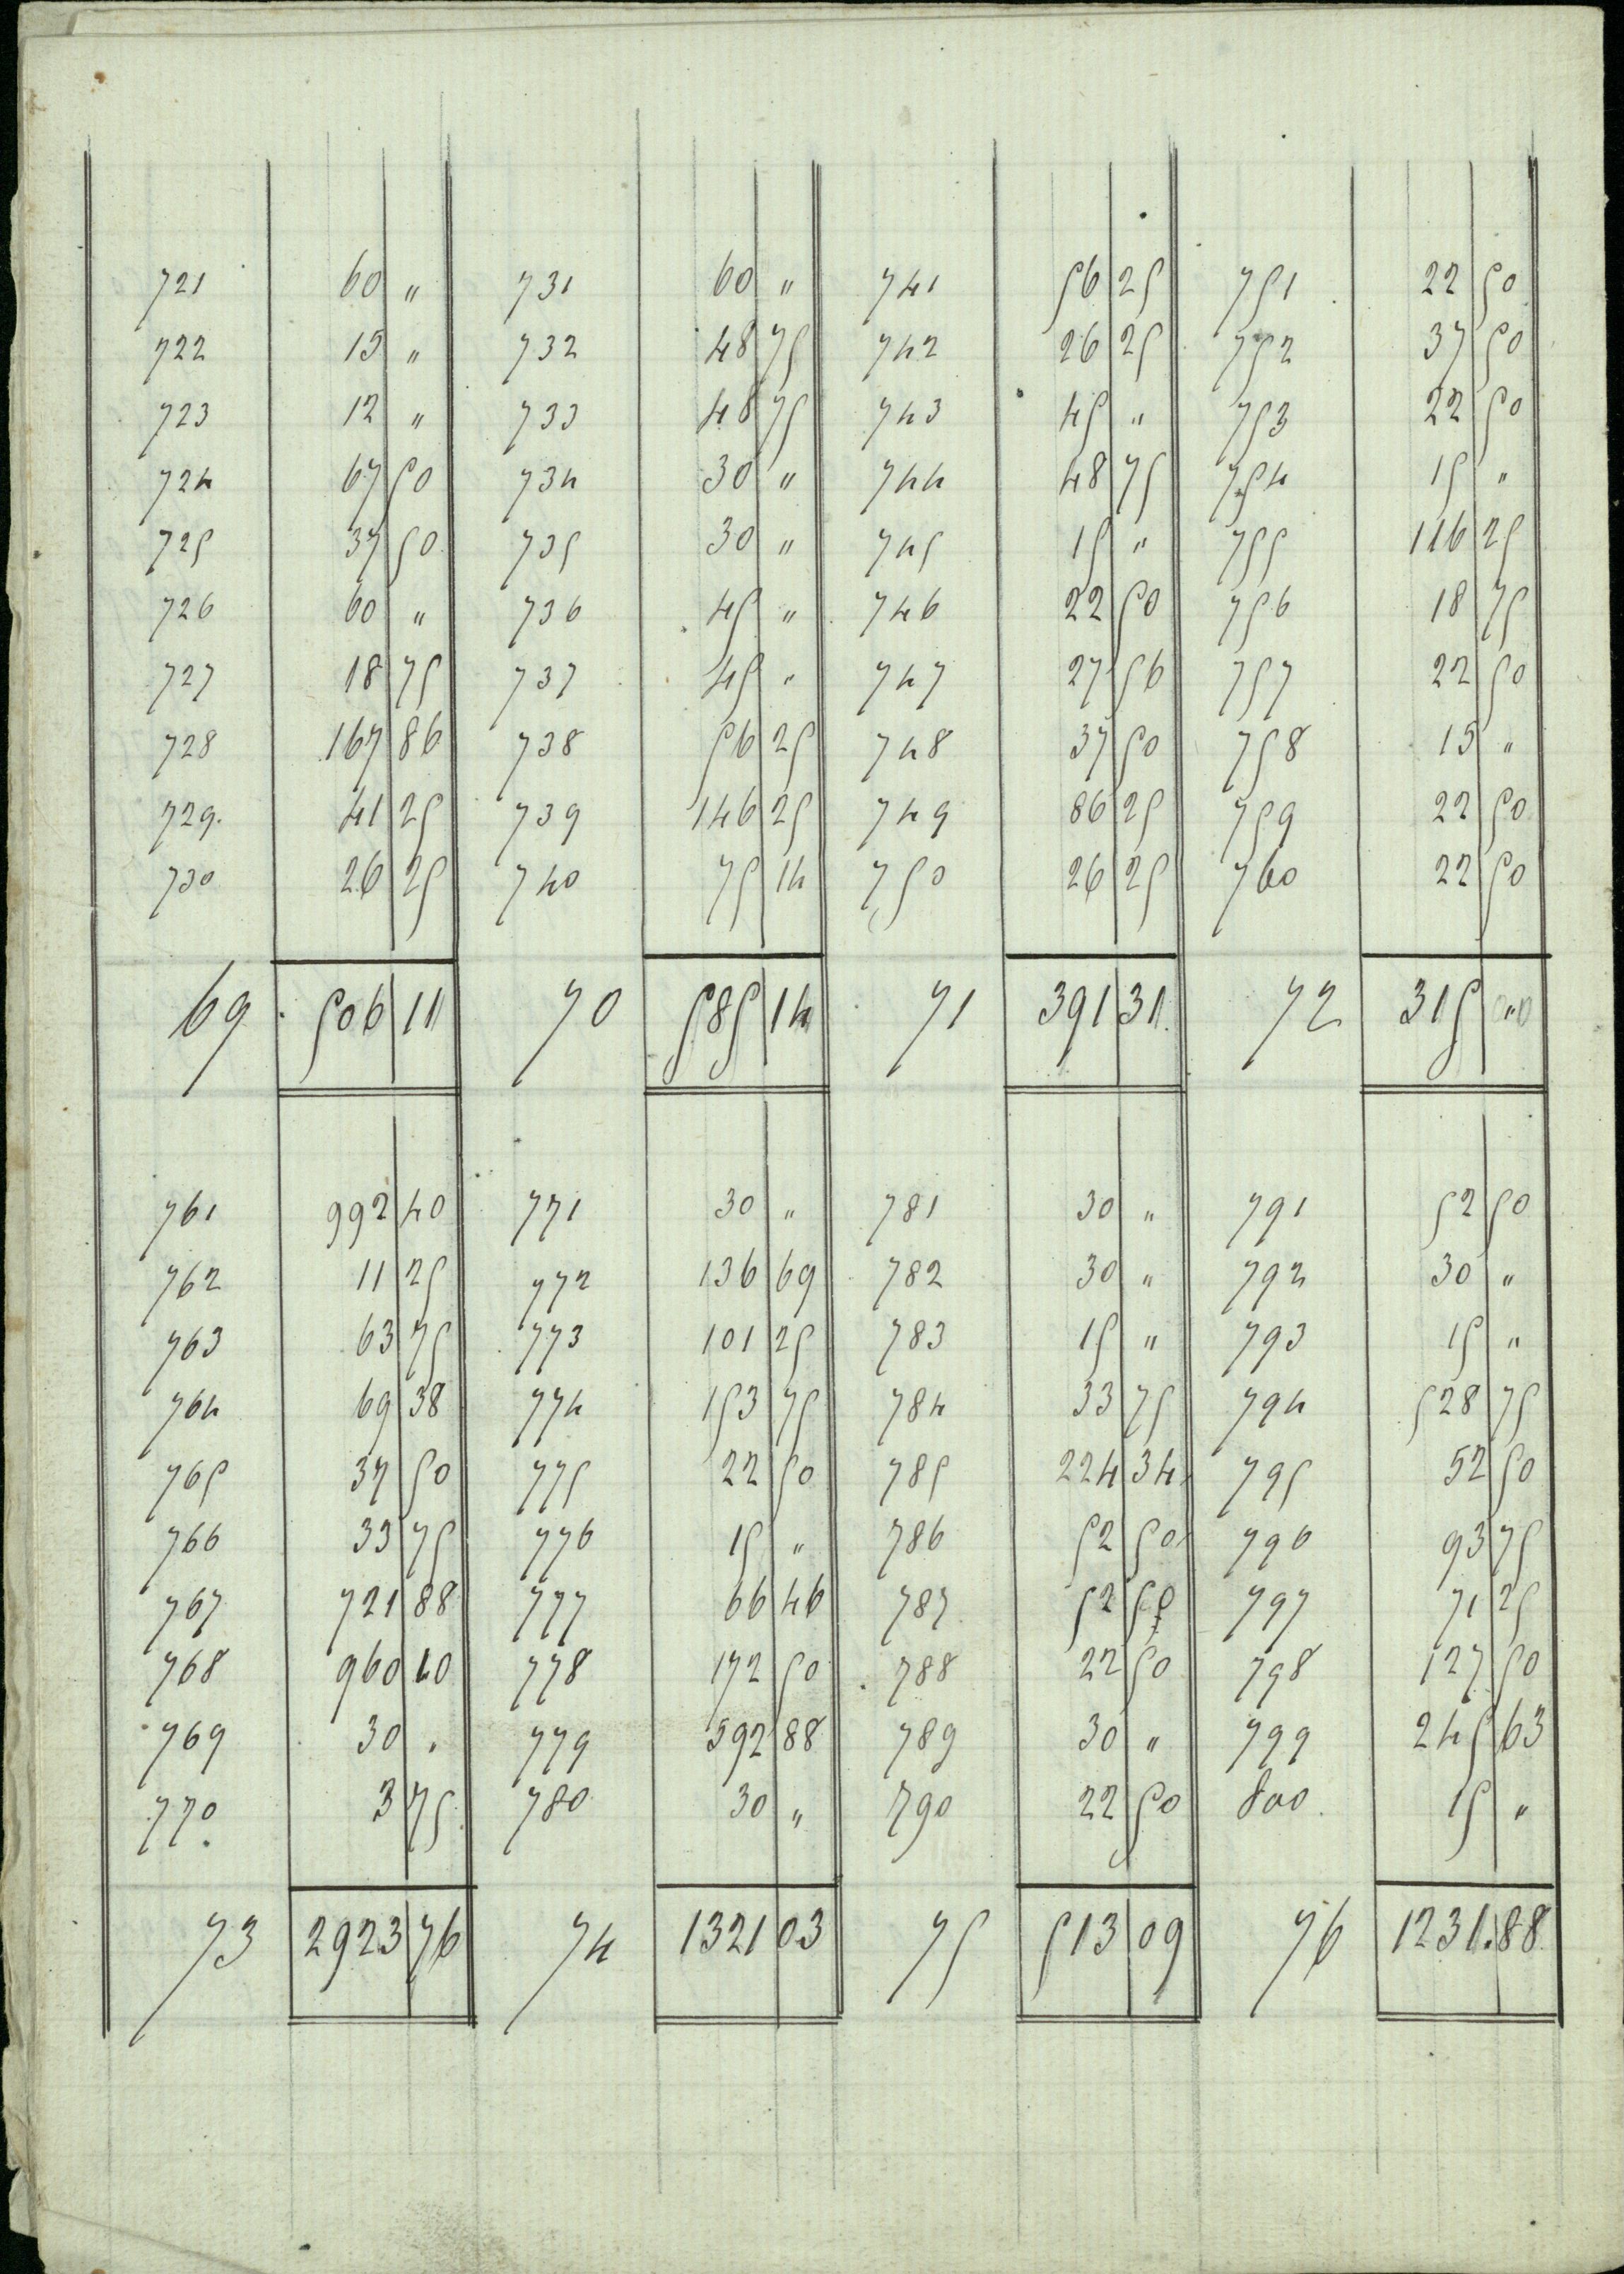 721 60 " 731 60 " 741 56 25 751 22 50
722 15 " 732 48 75 742 26 25 752 37 50
723 12 " 733 48 75 743 45 " 753 22 50
724 67 50 734 30 " 744 48 75 754 15 "
725 37 50 735 30 " 745 15 " 755 116 25
726 60 " 736 45 " 746 22 50 756 18 75
727 18 75 737 45 " 747 27 56 757 22 50
728 167 86 738 56 25 748 37 50 758 15 "
729. 41 25 739 146 25 749 86 25 759 22 50
730 26 25 740 75 14 750 26 25 760 22 50
69 506 11 70 585 14 71 391 31. 72 315 "
761 992 40 771 30 " 781 30 " 791 52 50
762 11 25 772 136 69 782 30 " 792 30 "
763 63 75 773 101 25 783 15 " 793 15 "
764 69 38 774 153 75 784 33 75 794 528 75
765 37 50 775 22 50 785 224 34 795 52 50
766 33 75 776 15 " 786 52 50 796 93 75
767 721 88 777 66 46 787 52 50 797 71 25
768 960 10 778 172 50 788 22 50 798 127 50
769 30 " 779 592 88 789 30 " 799 245 63
770 3 75 780 30 " 790 22 50 800 15 "
73 2923 76 74 1321 03 75 513 09 76 1231.88